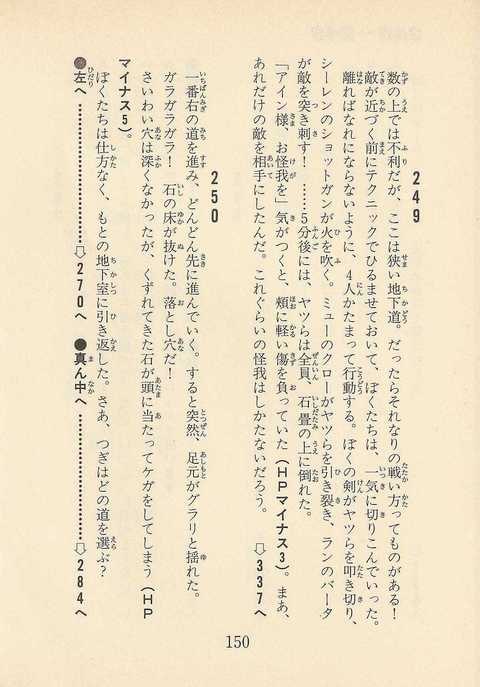 249
数の上では不利だが、ここは狭い地下道。だったらそれなりの戦い方ってものがある!
敵が近づく前にテクニックでひるませておいて、ぼくたちは、一気に切りこんでいった。
離ればなれにならないように、4人かたまって行動する。ぼくの剣がヤツらを叩き切り、
シーレンのショットガンが火を吹く。ミューのクローがヤツらを引き裂き、ランのバータ
が敵を突き刺す!……5分後には、ヤツらは全員、石畳の上に倒れた。
「アイン様、お怪我を」気がつくと、頬に軽い傷を負っていた(HPマイナス3)。まあ、
あれだけの敵を相手にしたんだ。これぐらいの怪我はしかたないだろう。 ⇨337へ
250
一番右の道を進み、どんどん先に進んでいく。すると突然、足元がグラリと揺れた。
ガラガラガラ! 石の床が抜けた。落とし穴だ!
さいわい穴は深くなかったが、くずれてきた石が頭に当たってケガをしてしまう(HP
マイナス5)。
ぼくたちは仕方なく、もとの地下室に引き返した。さあ、つぎはどの道を選ぶ?
●左へ……………………⇨270へ ●真ん中へ……………………⇨284へ
150